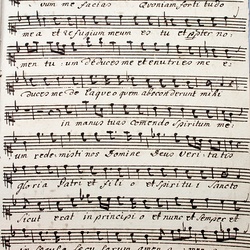 vum me facias Quoniam forti tudo
mea et refugium meum es tu et propter no:
men tu: um deduces me et enutries me e:
duces me de laqueo quem absconderunt mihi
in manus tuas comendo spiritum me:
um redemisti nos Domine Deus veri tatis
Gloria Patri et Fili o et spiritu i Sancto
Sicut erat in principi o et nunc et semper et
in saecula saecu lorum amen